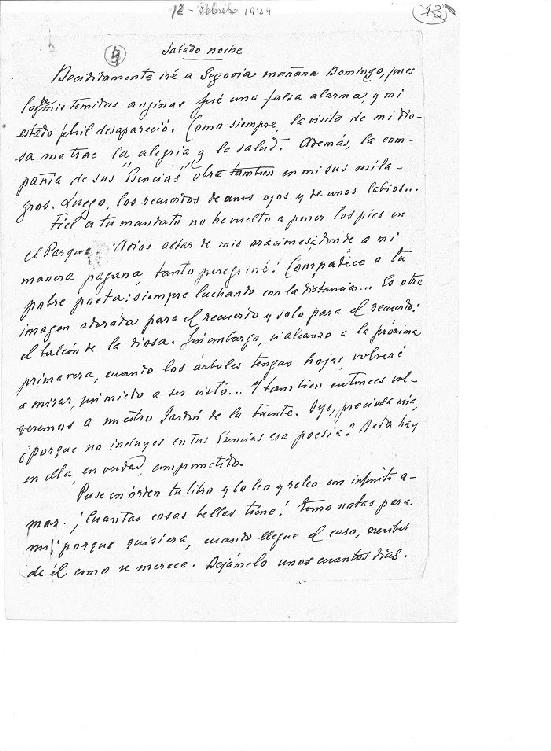 12 - Febrero 1929
Sábado noche
Decididamente iré a Segovia mañana Domingo, pues
mis temidas anginas fué una falsa alarma, y mi
estado febril desapareció. Como siempre, la visita de mi dio-
sa me trae la alegría y la salud. Además, la com-
pañia de sus "Esencias" obra tambien en mi sus mila-
gros. Luego, los recuerdos de unos ojos y de unos labios...
Fiel a tu mandato no he vuelto a poner los pies en
el Parque. Adios de mis donde a mi
manera pagana, tanto peregriné! Compadece a tu
pobre poeta, siempre luchando con la distancia... Es otra
imagen adorada para el recuerdo y solo para el recuerdo:
el balcón de la diosa. Sin embargo, si alcanzo a la próxima
primavera, cuando los árboles tengan hojas, volveré
a mirar, sin miedo a ser visto... Y tambien entonces vol-
veremos a nuestro Jardín de la Fuente. Oye, preciosa mia,
¿porque no incluyes en tus Esencias esa poesía? Nada hay
en ella, en verdad, comprometido.
Puse en orden tu libro y lo leo y releo con infinito a-
mor. ¡Cuantas cosas bellas tiene! Tomo notas para
mí porque quisiera, cuando llegue el caso, escribir
de él como se merece. Déjamelo unos cuantos dias.